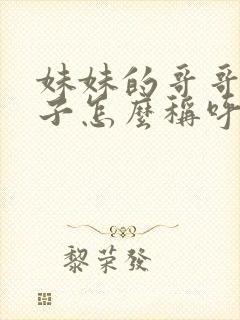 妹妹的哥哥
子怎麼稱呼
黎荣發